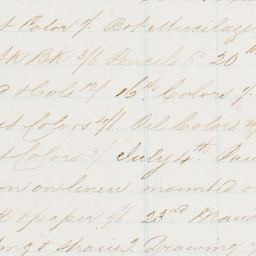 t Color 7/ Bot Mucilage
k BK 3/6 Pencils 6 20th
d & Cols 12/ 16th Colors 7/
Colors 4/. Oil Colors
t Colors 3/ July 4th
on on linen mounted o
& paper 9/6 23rd
g & Strain? Drawing